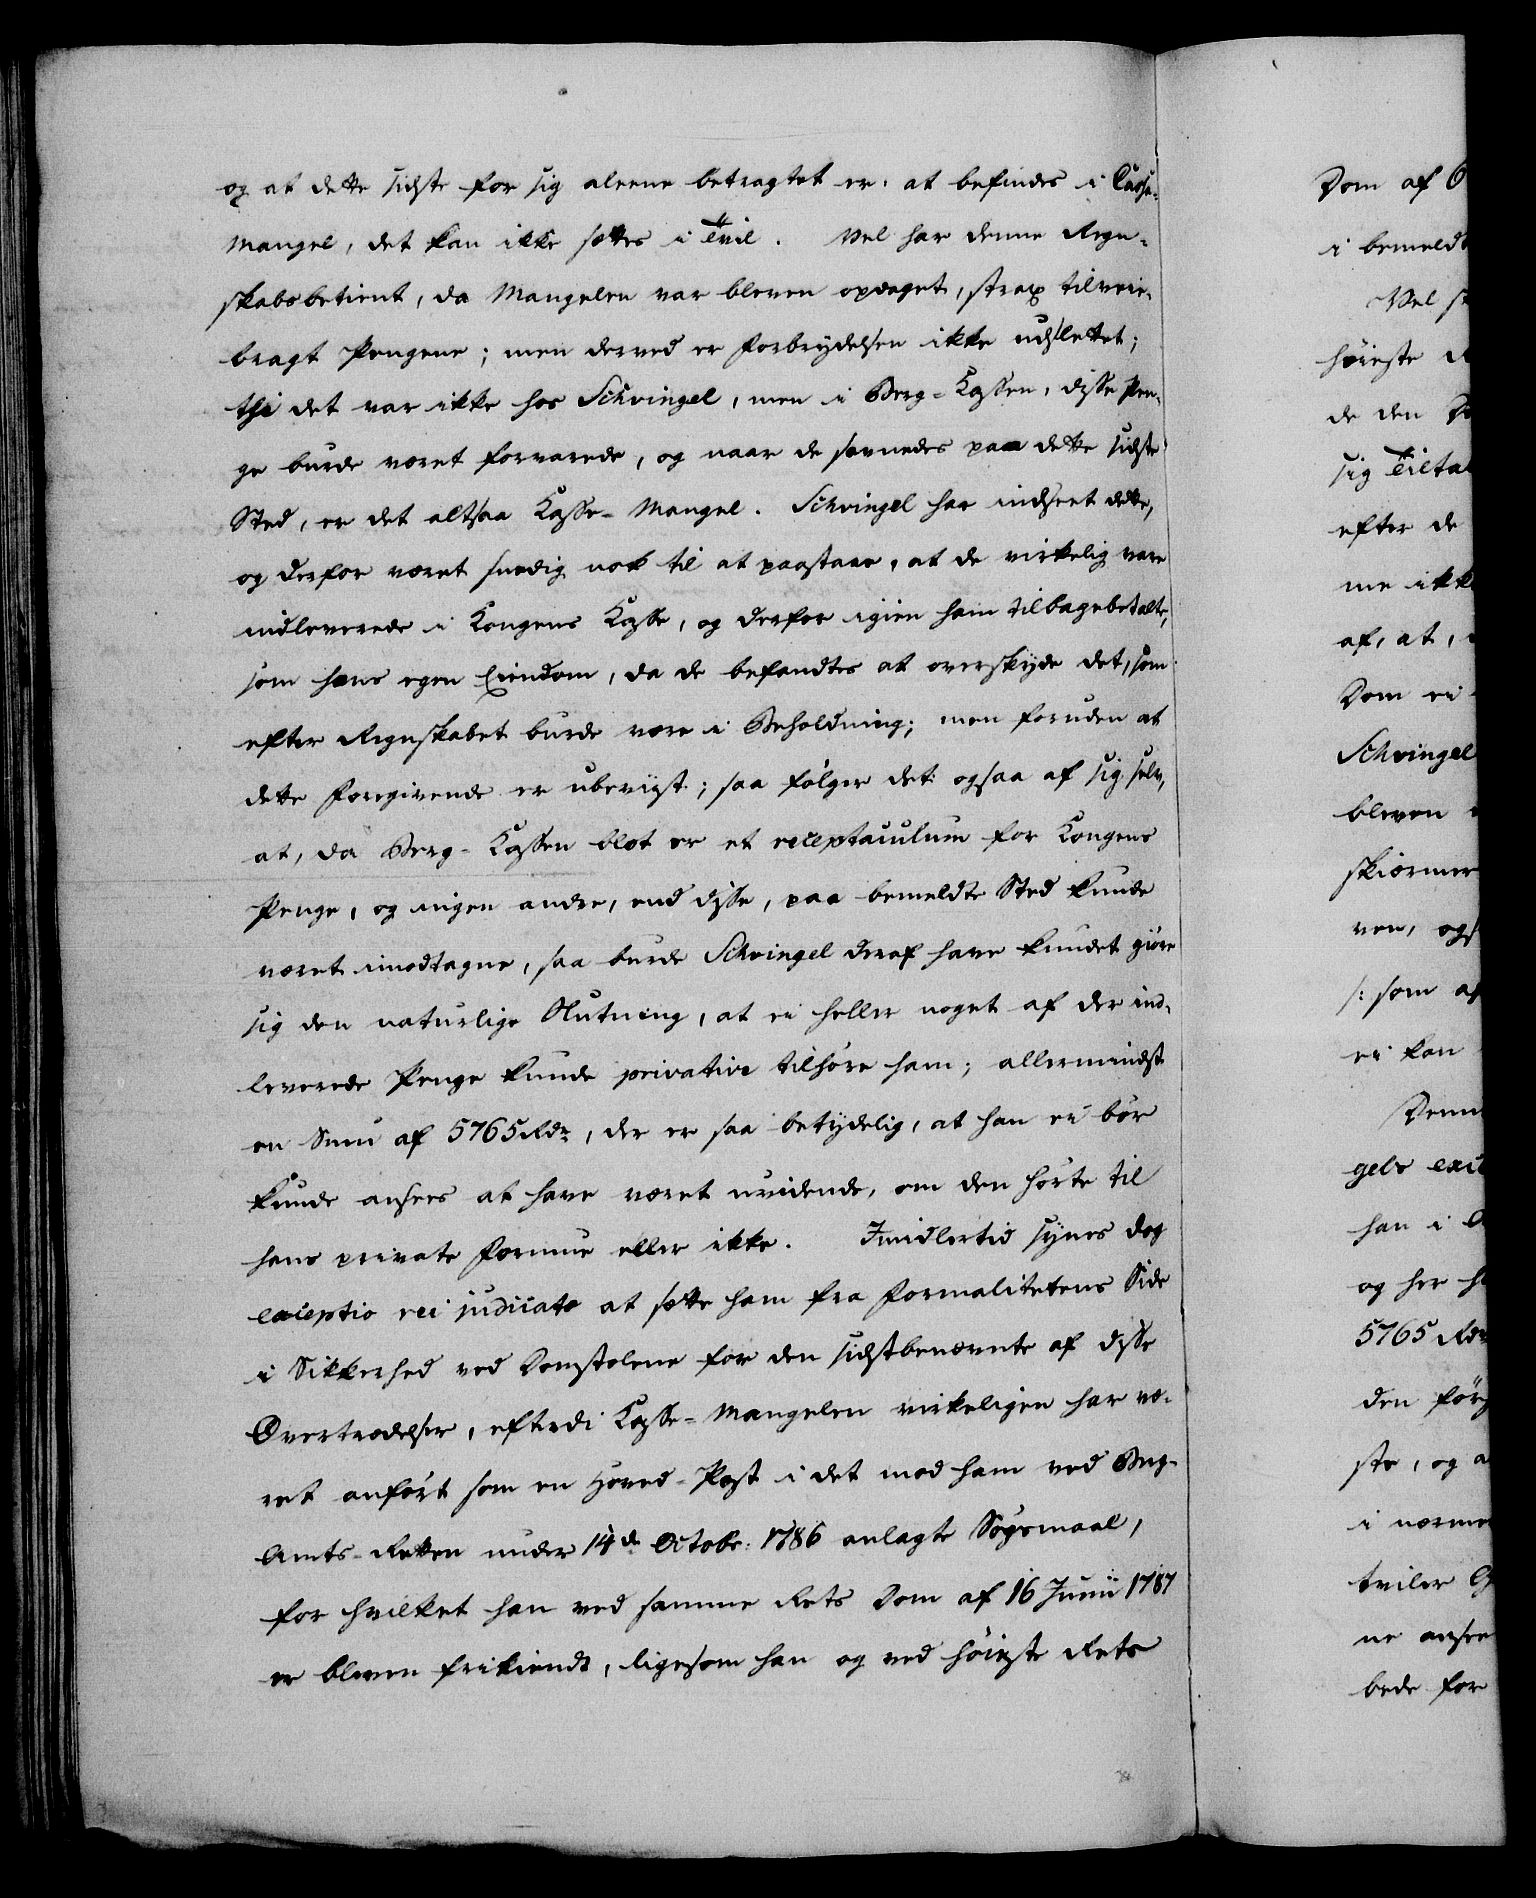 og at dette sidste for sig aleene betragtet er: at befindes i Casse-
Mangel, det kan ikke sættes i Tvil. Vel har denne Regn-
skabsbetient, da Mangelen var bleven opdaget, strax tilveie-
bragt Pengene; men derved er Forbrydelsen ikke udslettet;
thi det var ikke hos Schvingel, men i Berg-Kassen, disse Pen-
ge burde været forvarede, og naar de savnedes paa dette sidste
Sted, er det altsaa Kasse-Mangel. Schvingel har indseet dette,
og derfor været snedig nok til at paastaae, at de virkelig vare
indleverede i Kongens Kasse, og derfor igien ham tilbagebetalte,
som hans egen Eiendom, da de befandtes at overskyde det, som
efter Regnskabet burde være i Beholdning; men foruden at
dette Foregivende er ubeviist; saa følger det ogsaa af sig selv,
at, da Berg-Kassen blot er et receptaculum for Kongens
Penge, og ingen andre, end disse, paa bemeldte Sted kunde
været imodtagne, saa burde Schvingel deraf have kundet giøre
sig den naturlige Slutning, at ei heller noget af der ind-
leverede Penge kunde privative tilhøre ham; allermindst
en Sum af 5765 Rdr, der er saa betydelig, at han ei bør
kunde ansees at have været uvidende, om den hørte til
hans private Formue eller ikke. Imidlertid synes dog
exceptio rei judicatæ at sætte ham fra Formalitetens Side
i Sikkerhed ved Domstolene for den sidstbenævnte af disse
Overtrædelser, efterdi Kasse-Mangelen virkeligen har væ-
ret anført som en Hoved-Post i det mod ham ved Berg-
Amts-Retten under 14de Octobr: 1786 anlagte Søgsmaal,
for hvilket han ved samme Rets Dom af 16 Junii 1787
er bleven frikiendt, ligesom han og ved høieste Rets
Dom af 6
i bemeldt
Vel
høieste
de den
sig Tilta
efter de
me ikk
af, at,
Dom ei
Schvingel
bleven
skiermer
ven, ogs
/: som af
ei kan
Denn
gels exce
han i
og her
5765 Rdr
den før
ste, og a
i nærme
tviler
ne ansee
bede for